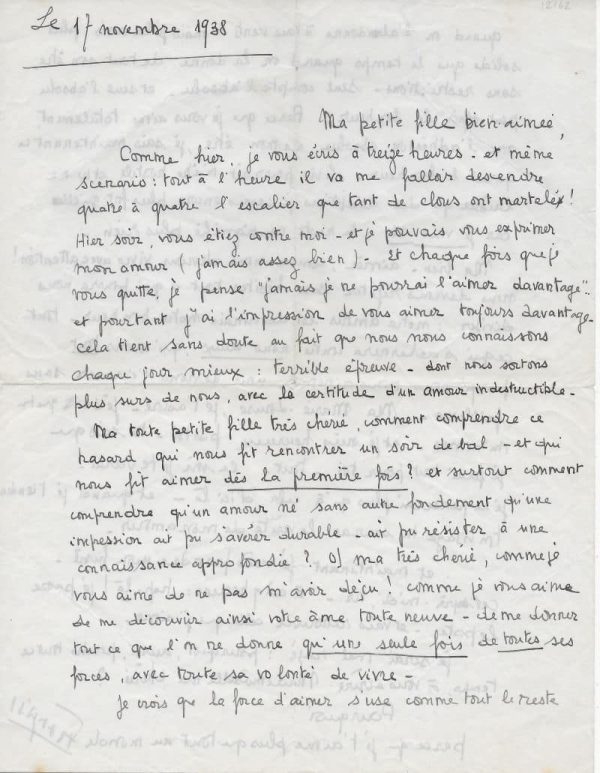 12/62
Le 17 novembre 1938
Ma petite fille bien-aimée,
Comme hier, je vous écris à treize heures - et même
scenario : tout à l'heure il va me falloir descendre
quatre à quatre l'escalier que tant de clous ont martelés !
Hier soir, vous étiez contre moi - et je pouvais vous exprimer
mon amour (jamais assez bien) - Et chaque fois que je
vous quitte, je pense "jamais je ne pourrai l'aimer davantage"..
et pourtant j'ai l'impression de vous aimer toujours davantage -
cela tient sans doute au fait que nous nous connaissons
chaque jour mieux : terrible épreuve - dont nous sortons
plus surs de nous, avec la certitude d'un amour indestructible -
Ma toute petite fille très cherié, comment comprendre ce
hasard qui nous fit rencontrer un soir de bal - et qui
nous fit aimer dès la première fois ? et surtout comment
comprendre qu'un amour né sans autre fondement qu'une
impression ait pu s'avérer durable - ait pu résister à une
connaissance approfondie ? O ma très cherié, comme je
vous aime de ne pas m'avoir déçu ! comme je vous aime
de me découvrir ainsi votre âme toute neuve - de me donner
tout ce que l'on ne donne qu'une seule fois de toutes ses
forces, avec toute sa volonté de vivre -
Je crois que la force d'aimer s'use comme tout le reste